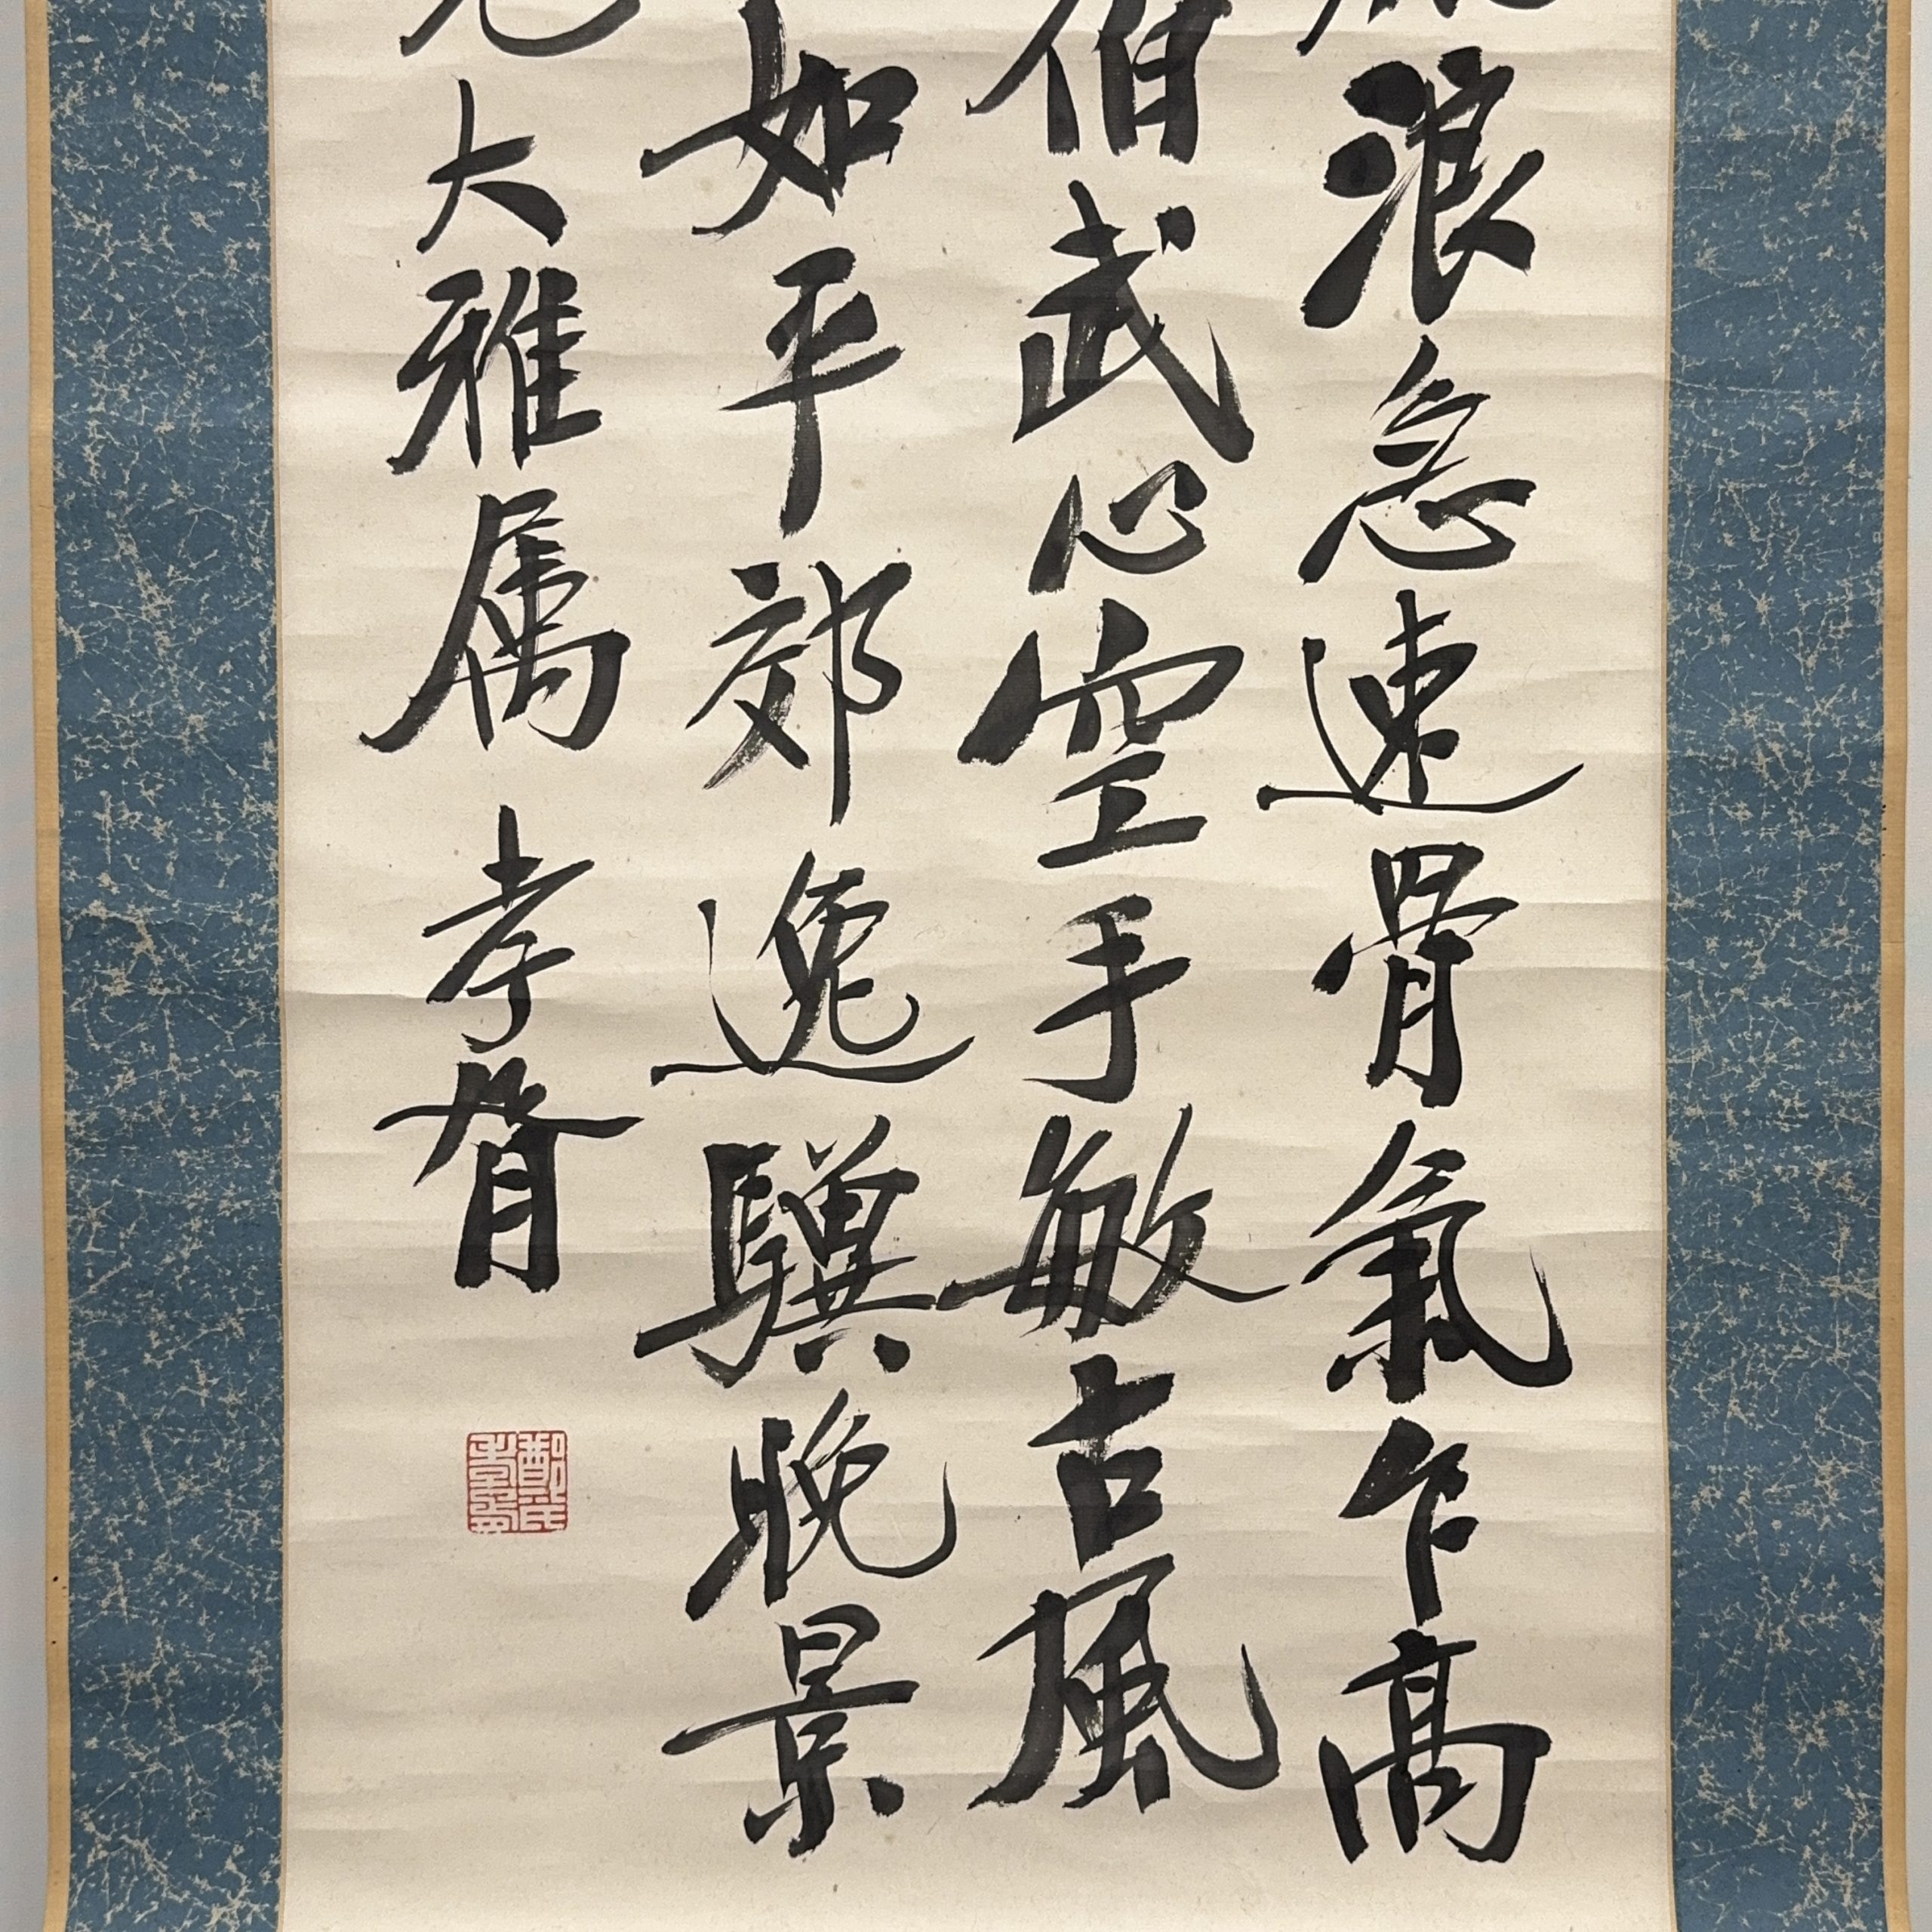 浪急速骨氣乍高
武心空手敏古風
如平郊逸驥晚景
大雅属 孝胥
鄭氏孝胥